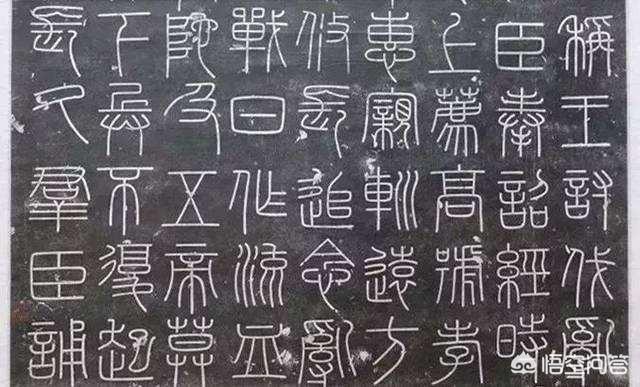 稱王討伐亂
臣奉詔經時
上薦高號孝
惠寴䡅遠方
攸長追念亂
戰日作流血
陀及五帝莫
下兵不復起
長久羣臣誦
悟空问答